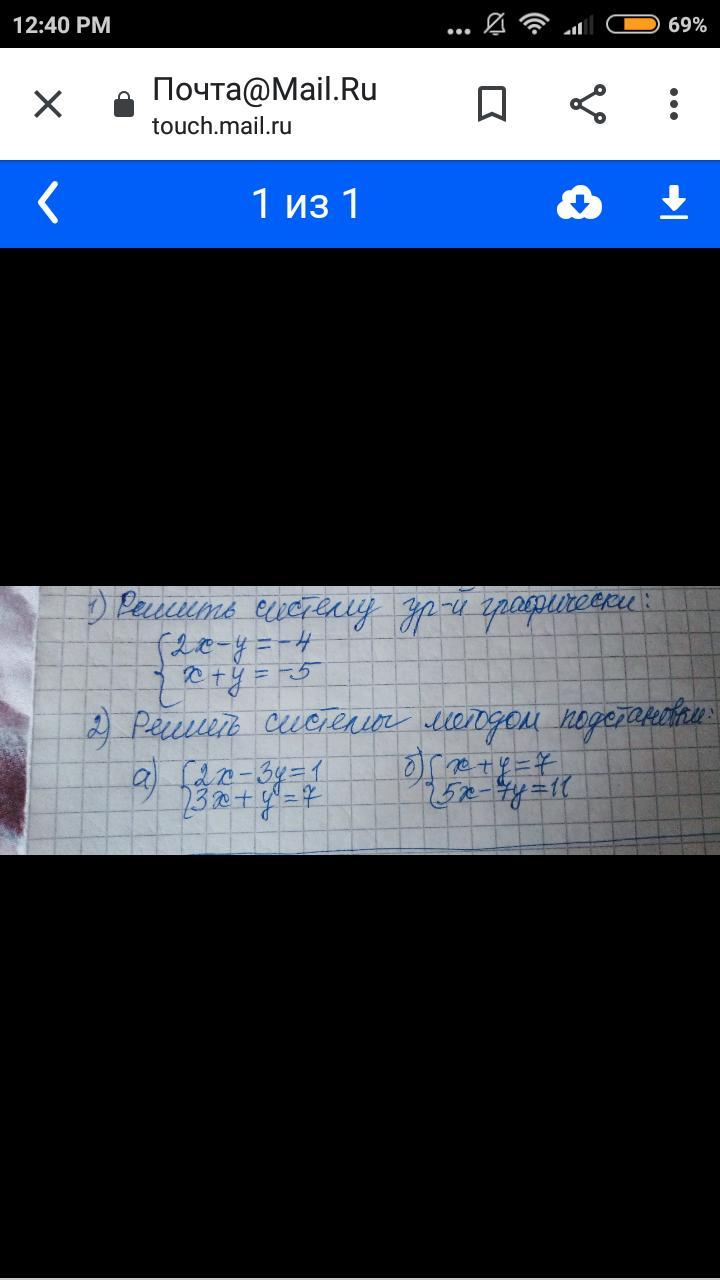 12:40 PM
... 69%
Почта@Mail.Ru
touch.mail.ru
1 из 1
1) Решить систему ур-й графически:
{2x-y=-4
x+y=-5
2) Решить системы методом подстановки:
а) {2x-3y=1
3x+y=7
б) {x+y=7
5x-7y=11